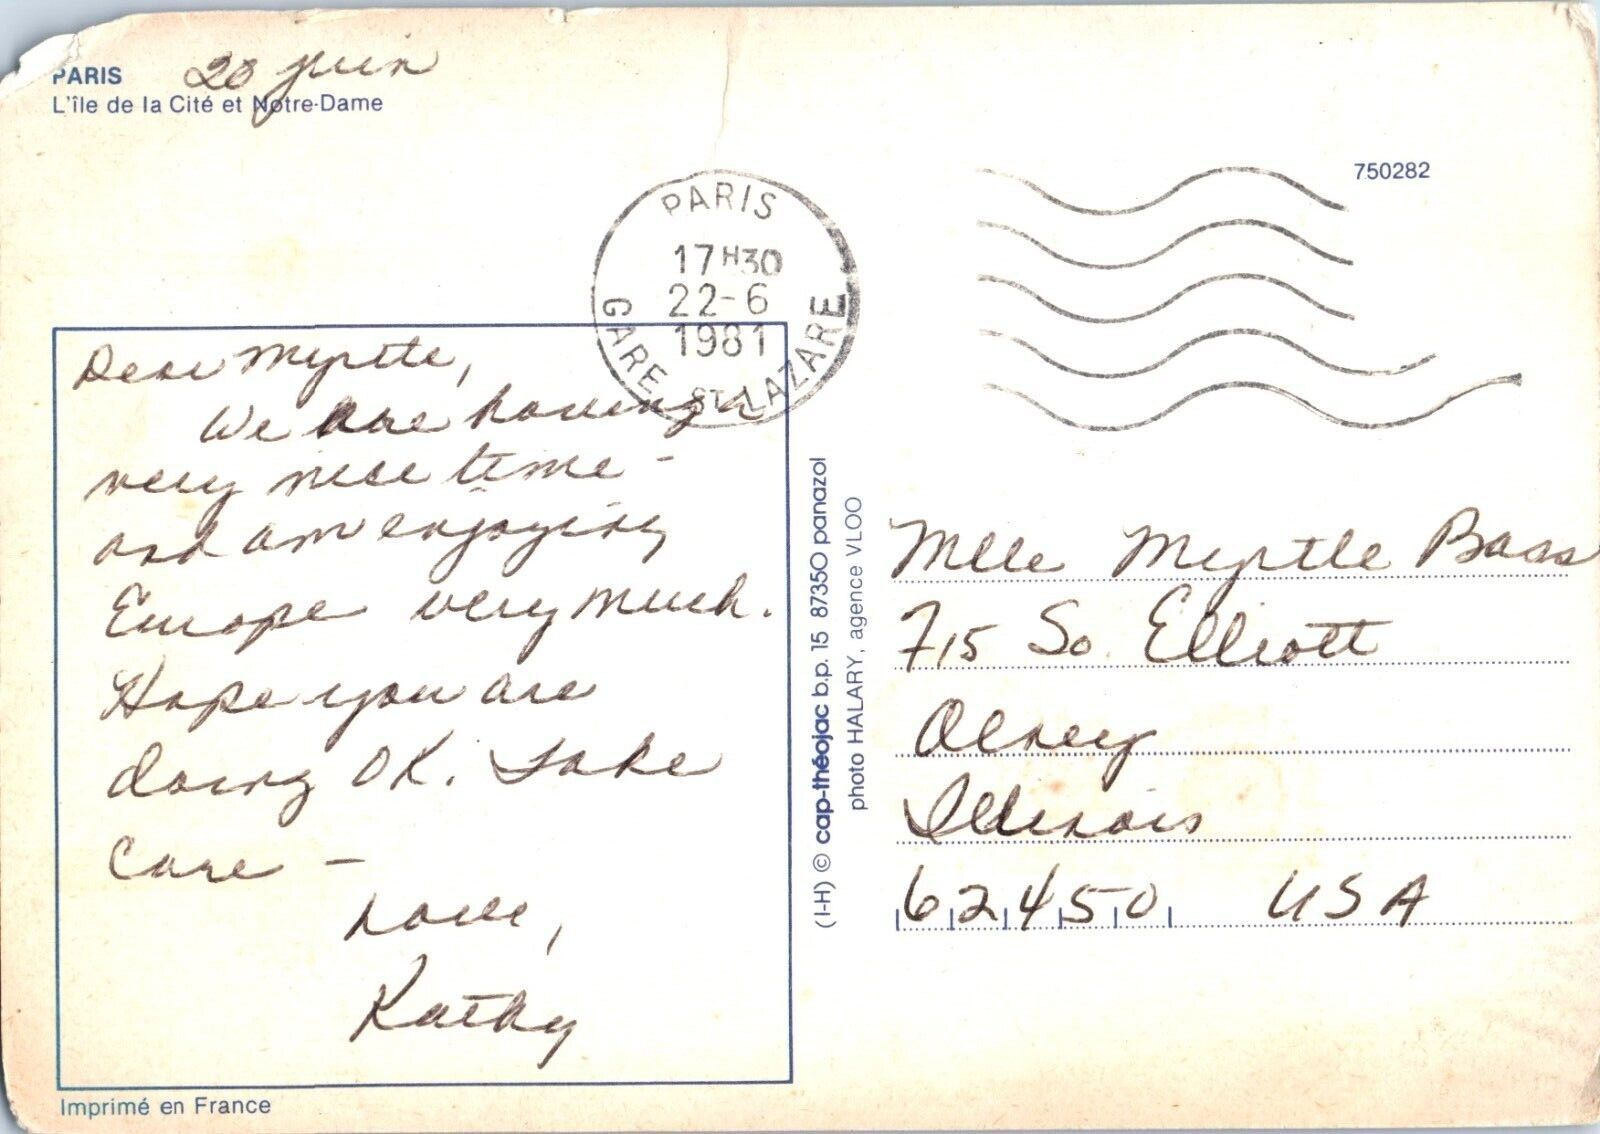 PARIS 20 juin
L'île de la Cité et Notre-Dame
750282
PARIS
17H30
22-6
1981
GARE ST LAZARE
Dear Myrtle,
We are having a
very nice time -
and am enjoying
Europe very much.
Hope you are
doing OK. Take
Care -
Love,
Kathy
Imprimé en France
(I-H) © cap-théojac b.p. 15 87350 panazol
photo HALARY, agence VLOO
Mlle Myrtle Bass
715 So. Elliott
Olney
Illinois
62450 USA